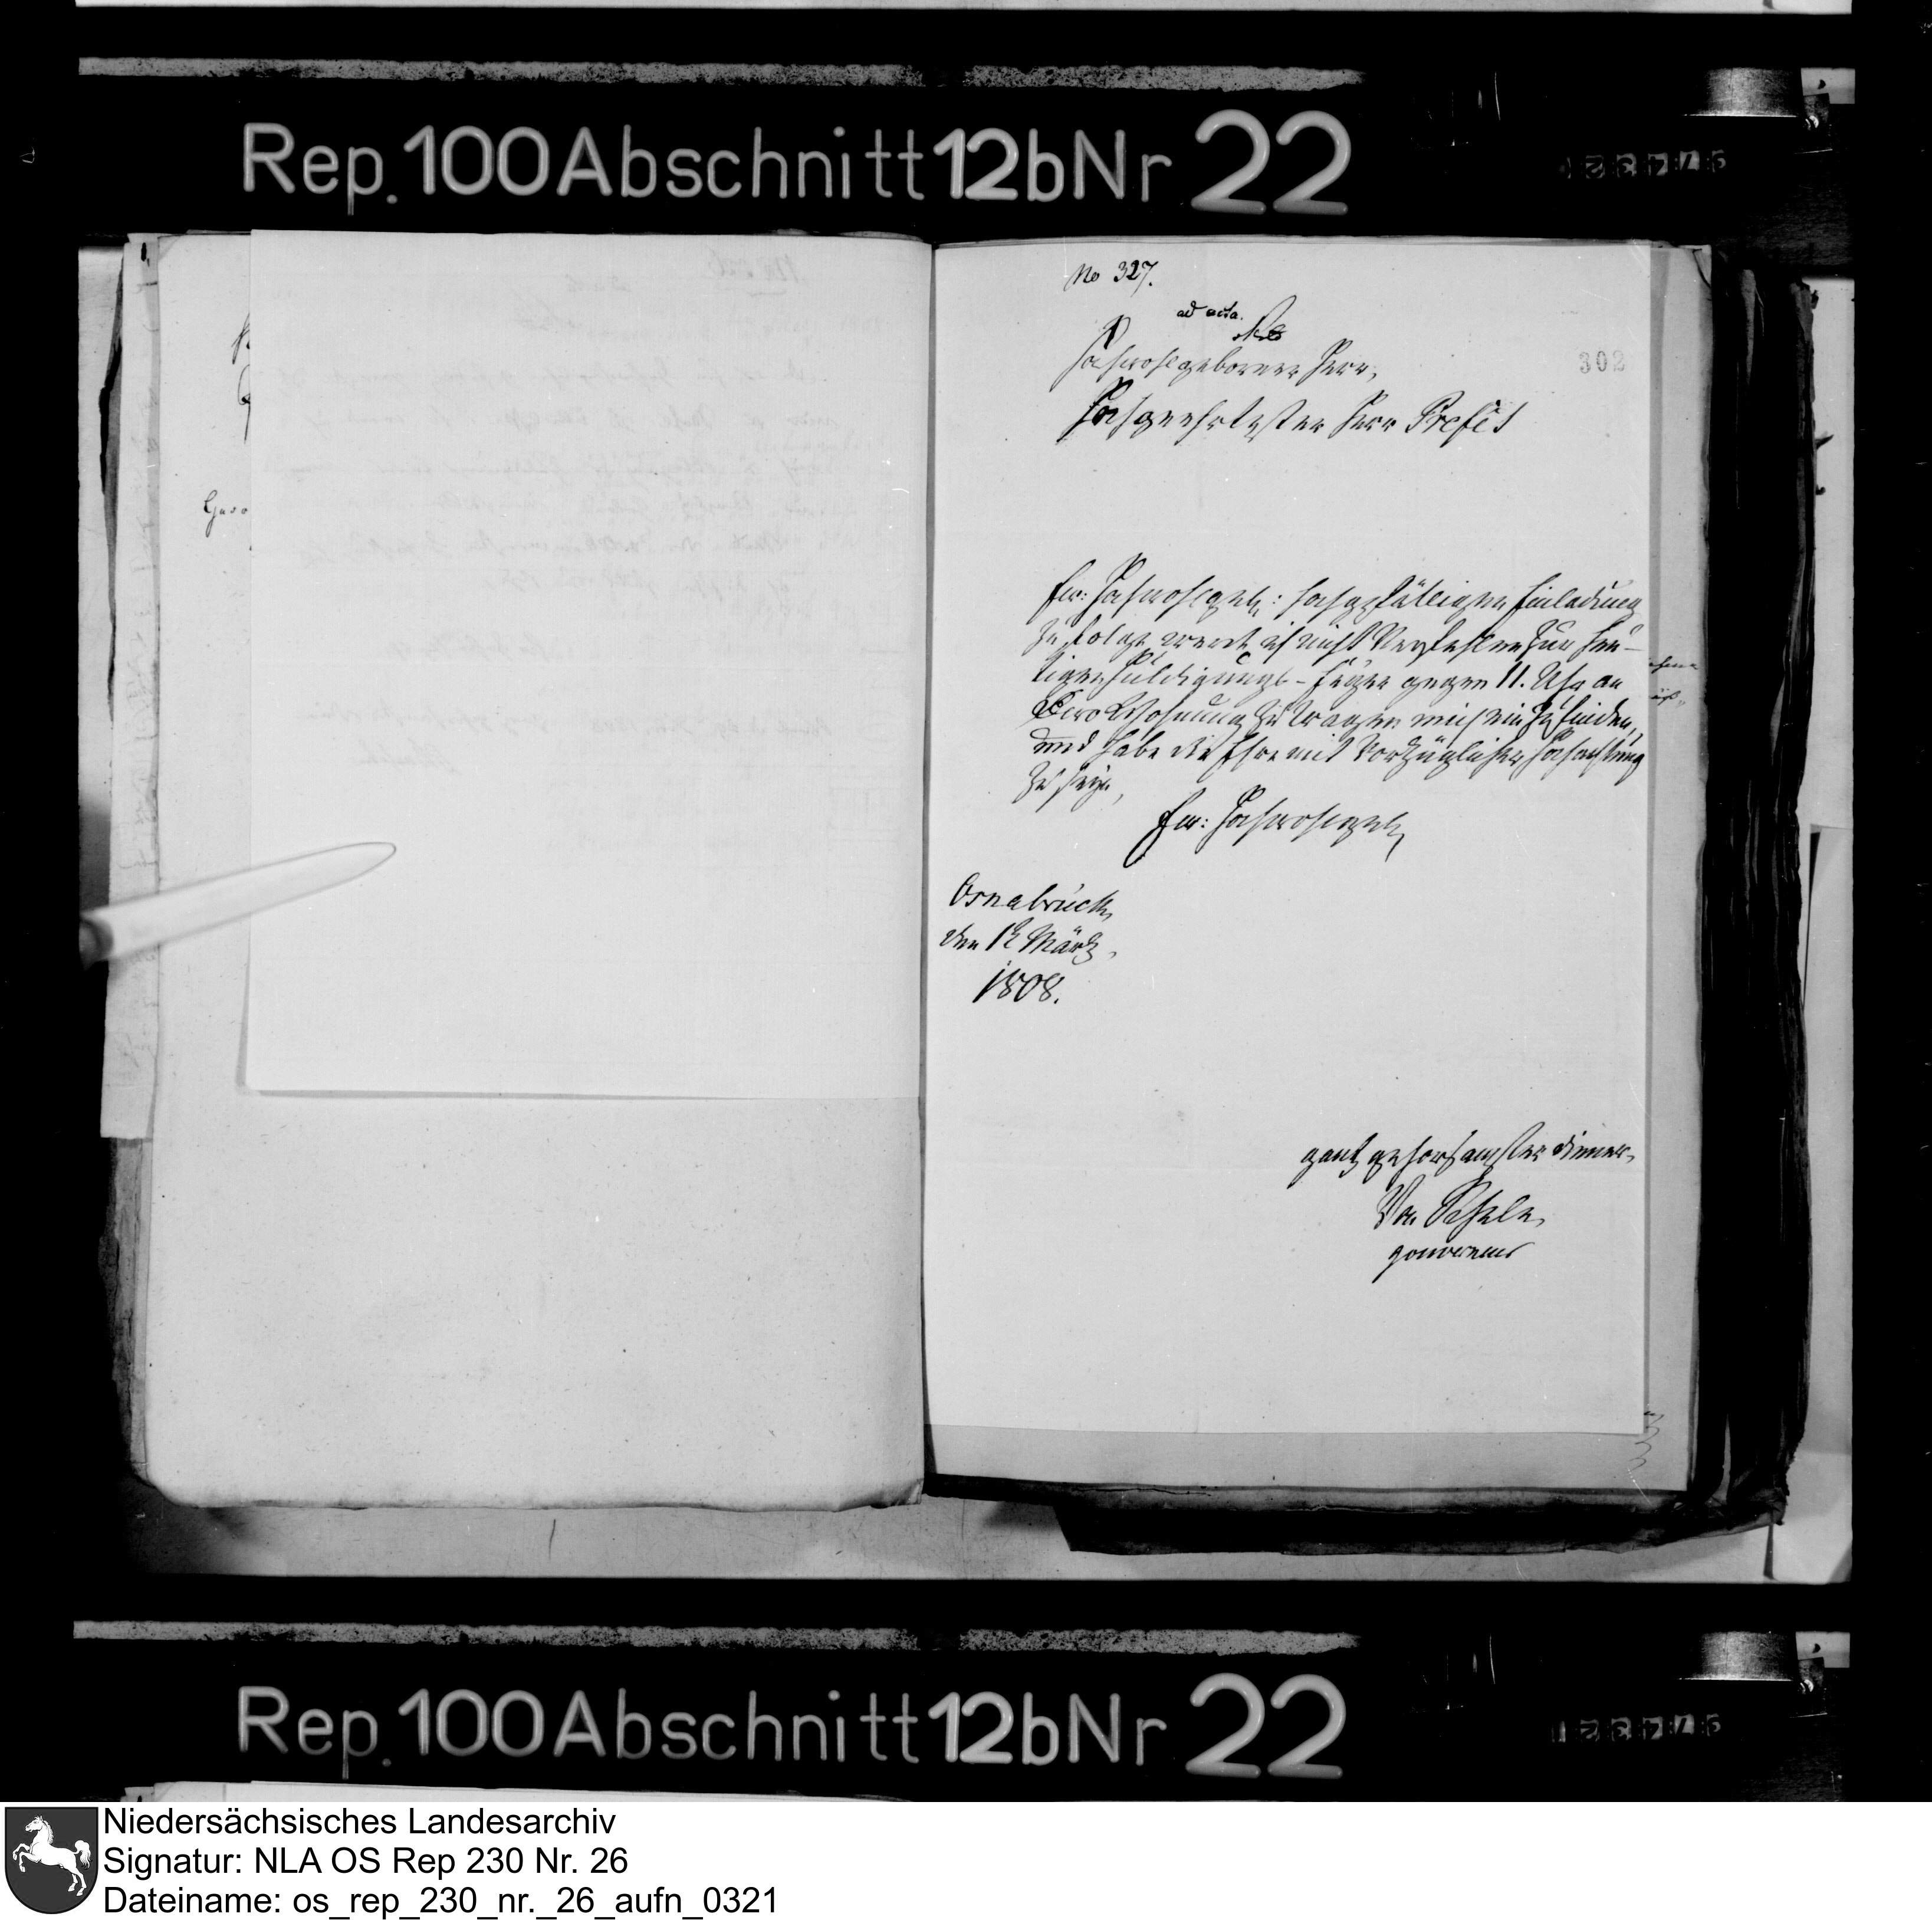 Rep. 100 Abschnitt 12b Nr 22
No 327.
ad acta.
302
Hochwohlgeborner Herr,
Hochgeehrtester Herr Prefet
Ew: Hochwohlgeb: hochgefälligen Einladung
zu folge werde ich nicht Verfehlen zur heu-
tigen Huldigungs-Feyer gegen 11. Uhr an
Dero Wohnung zu tragen mich ein zu finden,
und habe die Ehre mit Vorzüglicher Hochachtung
zu seyn,
Ew: Hochwohlgeb
Osnabrück,
den 12 Märtz,
1808.
gantz gehorsamster diener,
Von Schele,
gouverneur
Rep. 100 Abschnitt 12b Nr 22
Niedersächsisches Landesarchiv
Signatur: NLA OS Rep 230 Nr. 26
Dateiname: os_rep_230_nr._26_aufn_0321